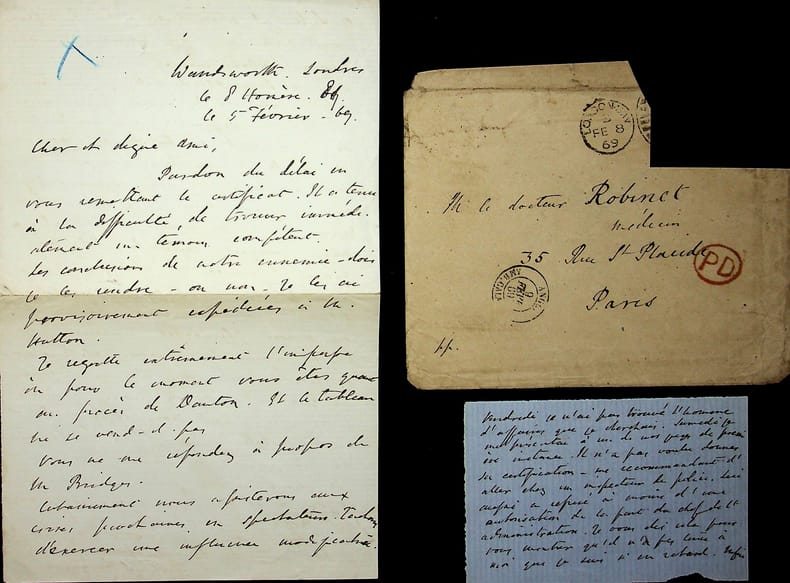 Wandsworth. Londres
le 8 Homère. 81
le 5 Février. 69.
Cher et digne ami,
Pardon du délai en
vous remettant le certificat. Il a tenu
à la difficulté de trouver immédi-
atement un témoin compétent.
Les conclusions de notre ennemie - dois
je les rendre - ou non - Je les ai
provisoirement expédiées à M.
Hutton.
Je regrette extrêmement l'impasse
où pour le moment vous êtes quant
au procès de Danton. Et le tableau
ne se vend-il pas
Vous ne me répondez à propos de
M Bridges.
Certainement nous assisterons aux
crises prochaines en spectateurs. Tachons
d'exercer une influence modificatrice.
LONDON S.W
FE 8
69
M. le docteur Robinet
médecin
35 Rue St Placide
PD
ANGL.
9
FEVR
69
AMB. CALAIS
Paris
pp.
Vendredi je n'ai pas trouvé l'homme
d'affaires que je cherchais. Samedi je
me présentai à un de nos juges de premi
ère instance. Il n'a pas voulu donner
sa certification - me recommandant d'
aller chez un inspecteur de police. Lui
aussi a refusé à moins d'une
autorisation de la part du chef de l'
administration. Je vous dis cela pour
vous montrer qu'il n'a pas tenu à
moi que je suis si en retard. Enfin